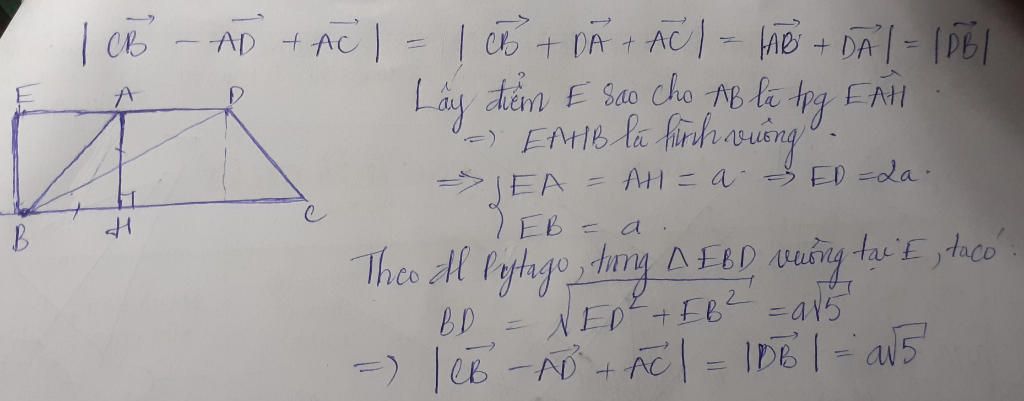 | CB⃗ − AD⃗ + AC⃗ | = | CB⃗ + DA⃗ + AC⃗ | = |AB⃗ + DA⃗| = |DB⃗|
E A D
B H C
Lấy điểm E sao cho AB là tpg EAH
=> EAHB là hình vuông.
=> { EA = AH = a => ED = 2a.
EB = a.
Theo đl Pytago, trong Δ EBD vuông tại E, ta có:
BD = √(ED² + EB²) = a√5
=> | CB⃗ − AD⃗ + AC⃗ | = |DB⃗| = a√5